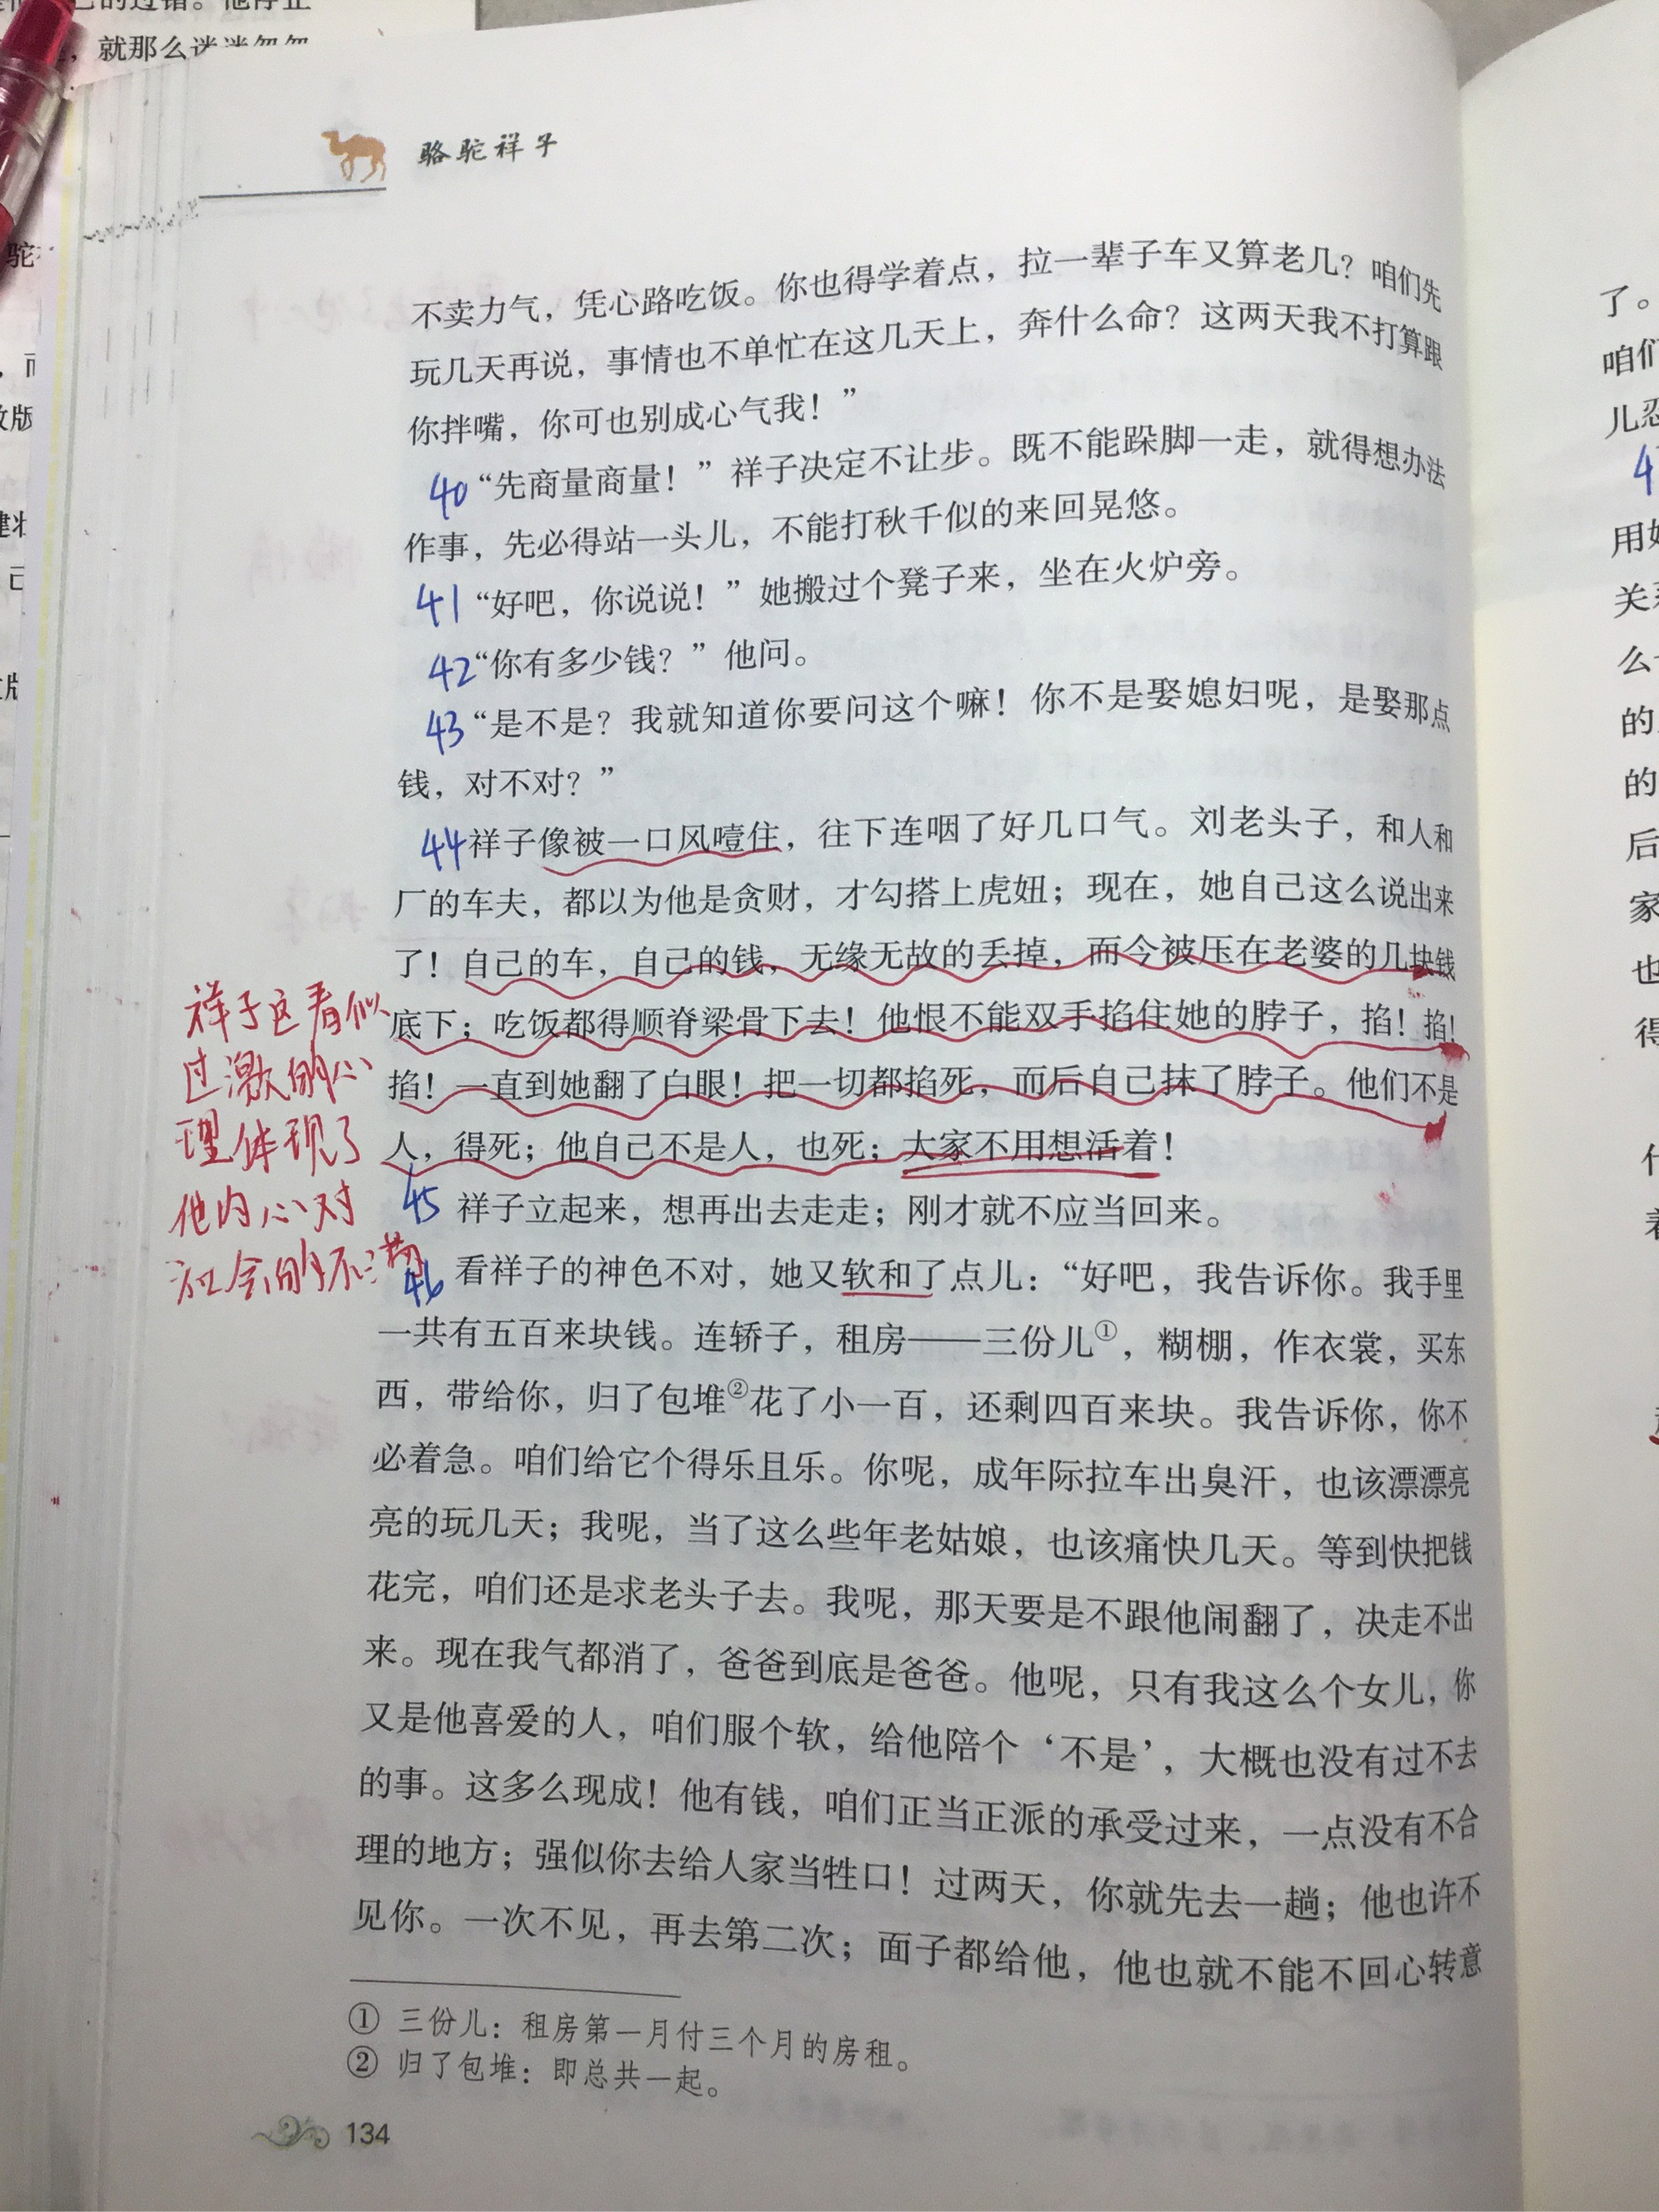 骆驼祥子
不卖力气，凭心路吃饭。你也得学着点，拉一辈子车又算老几？咱们先
玩几天再说，事情也不单忙在这几天上，奔什么命？这两天我不打算跟
你拌嘴，你可也别成心气我！”
40“先商量商量！”祥子决定不让步。既不能跺脚一走，就得想办法
作事，先必得站一头儿，不能打秋千似的来回晃悠。
41“好吧，你说说！”她搬过个凳子来，坐在火炉旁。
42“你有多少钱？”他问。
43“是不是？我就知道你要问这个嘛！你不是娶媳妇呢，是娶那点
钱，对不对？”
44祥子像被一口风噎住，往下连咽了好几口气。刘老头子，和人和
厂的车夫，都以为他是贪财，才勾搭上虎妞；现在，她自己这么说出来
了！自己的车，自己的钱，无缘无故的丢掉，而今被压在老婆的几块钱
底下；吃饭都得顺脊梁骨下去！他恨不能双手掐住她的脖子，掐！掐！
掐！一直到她翻了白眼！把一切都掐死，而后自己抹了脖子。他们不是
人，得死；他自己不是人，也死；大家不用想活着！
45 祥子立起来，想再出去走走；刚才就不应当回来。
46 看祥子的神色不对，她又软和了点儿：“好吧，我告诉你。我手里
一共有五百来块钱。连轿子，租房——三份儿①，糊棚，作衣裳，买东
西，带给你，归了包堆②花了小一百，还剩四百来块。我告诉你，你不
必着急。咱们给它个得乐且乐。你呢，成年际拉车出臭汗，也该漂漂亮
亮的玩几天；我呢，当了这么些年老姑娘，也该痛快几天。等到快把钱
花完，咱们还是求老头子去。我呢，那天要是不跟他闹翻了，决走不出
来。现在我气都消了，爸爸到底是爸爸。他呢，只有我这么个女儿，你
又是他喜爱的人，咱们服个软，给他陪个‘不是’，大概也没有过不去
的事。这多么现成！他有钱，咱们正当正派的承受过来，一点没有不合
理的地方；强似你去给人家当牲口！过两天，你就先去一趟；他也许不
见你。一次不见，再去第二次；面子都给他，他也就不能不回心转意
① 三份儿：租房第一月付三个月的房租。
② 归了包堆：即总共一起。
134
祥子这看似
过激的心
理体现了
他内心对
社会的不满
就那么迷迷
了。
咱们
用
的
的
后
家
也